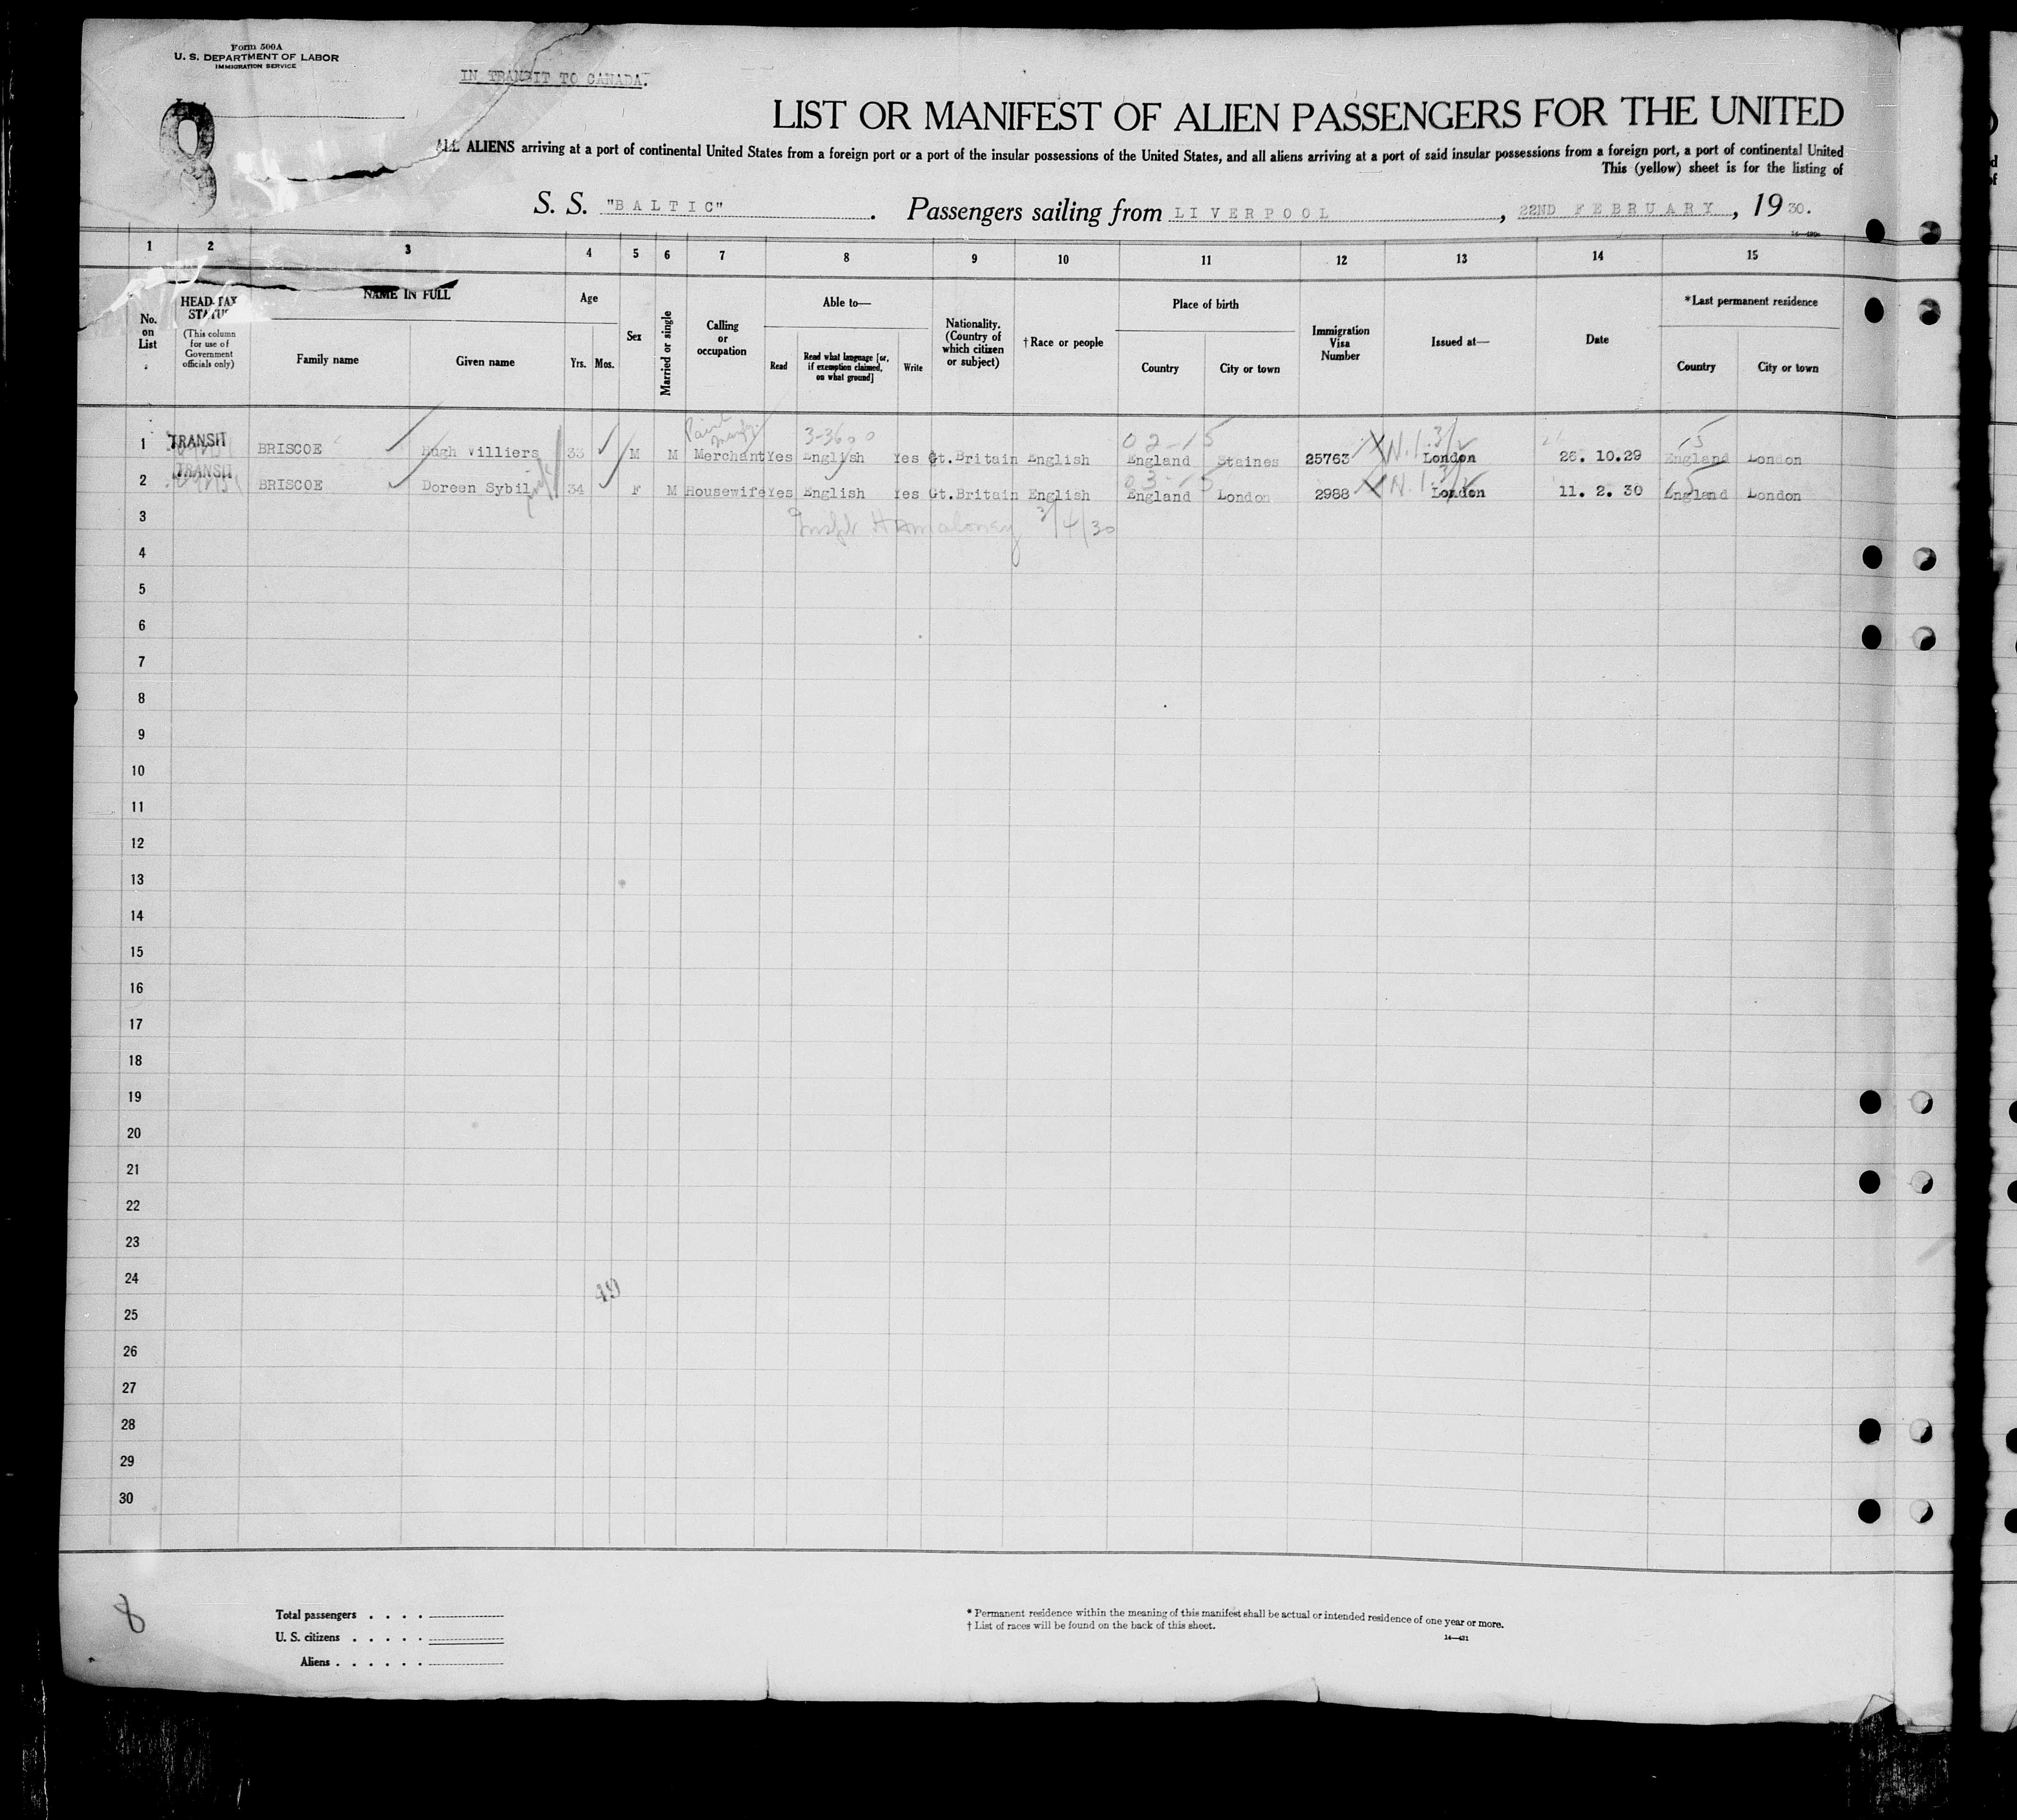 Form 500A
U. S. DEPARTMENT OF LABOR
IMMIGRATION SERVICE
IN TRANSIT TO CANADA.
8
LIST OR MANIFEST OF ALIEN PASSENGERS FOR THE UNITED
ALL ALIENS arriving at a port of continental United States from a foreign port or a port of the insular possessions of the United States, and all aliens arriving at a port of said insular possessions from a foreign port, a port of continental United
This (yellow) sheet is for the listing of
S. S. "BALTIC". Passengers sailing from LIVERPOOL, 22ND FEBRUARY, 1930.
1 2 3 4 5 6 7 8 9 10 11 12 13 14 15
No. on List
HEAD-TAX STATUS
(This column for use of Government officials only)
NAME IN FULL
Family name Given name
Age
Yrs. Mos.
Sex
Married or single
Calling or occupation
Able to—
Read
Read what language [or, if exemption claimed, on what ground]
Write
Nationality. (Country of which citizen or subject)
† Race or people
Place of birth
Country City or town
Immigration Visa Number
Issued at—
Date
* Last permanent residence
Country City or town
3-3600 02-15 N.I. 3/2 15
1 TRANSIT BRISCOE Hugh Villiers 33 M M Merchant Yes English Yes Gt.Britain English England Staines 25763 London 26. 10.29 England London
03-15 N.I. 3/2 15
2 TRANSIT BRISCOE Doreen Sybil 34 F M Housewife Yes English Yes Gt.Britain English England London 2988 London 11. 2. 30 England London
3 3/4/30
4
5
6
7
8
9
10
11
12
13
14
15
16
17
18
19
20
21
22
23
24
49
25
26
27
28
29
30
8
Total passengers . . . .
U. S. citizens . . . . .
Aliens . . . . . .
* Permanent residence within the meaning of this manifest shall be actual or intended residence of one year or more.
† List of races will be found on the back of this sheet.
14—431